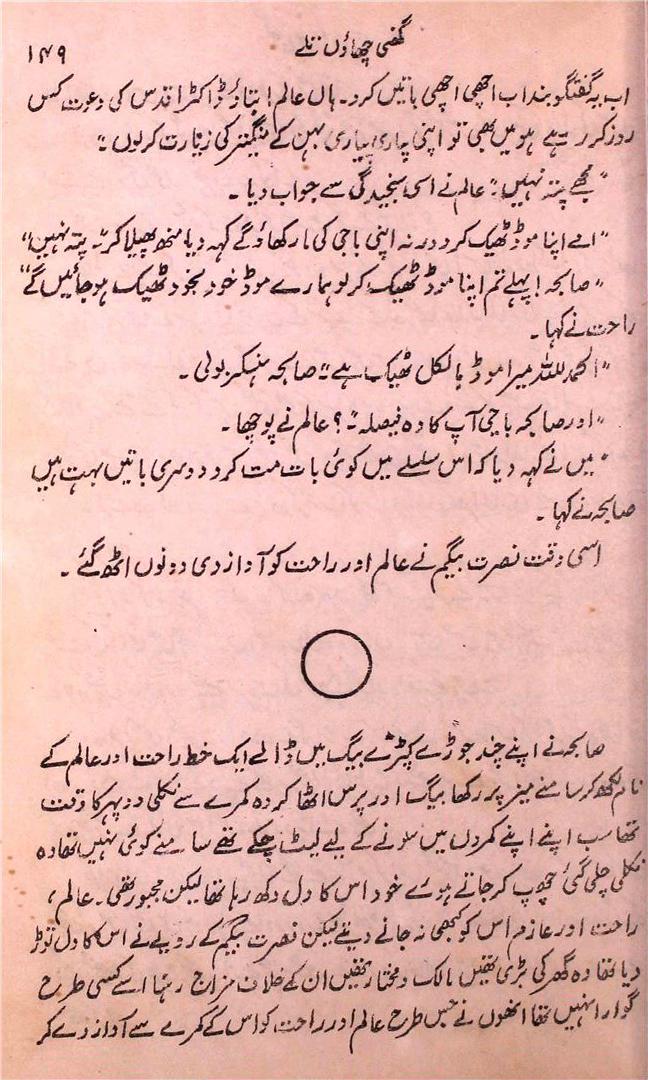 گھنی چھاؤں تلے
۱۴۹
اب یہ گفتگو بند اب اچھی اچھی باتیں کرو۔ ہاں عالم! بتاؤ ڈاکٹر اقدس کی دعوت کس
روز کر رہے ہو میں بھی تو اپنی پیاری پیاری بہن کے منگیتر کی زیارت کر لوں"
"مجھے پتہ نہیں" عالم نے اسی سنجیدگی سے جواب دیا۔
"اے اپنا موڈ ٹھیک کرو ورنہ اپنی باجی کی مار کھاؤ گے کہہ دیا منھ پھیلا کر" پتہ نہیں"
"صابحہ! پہلے تم اپنا موڈ ٹھیک کر لو ہمارے موڈ خود بخود ٹھیک ہو جائیں گے"
راحت نے کہا۔
"الحمدللہ میرا موڈ بالکل ٹھیک ہے" صابحہ ہنسکر بولی۔
"اور صابحہ باجی آپ کا وہ فیصلہ"؟ عالم نے پوچھا۔
"میں نے کہہ دیا کہ اس سلسلے میں کوئی بات مت کرو دوسری باتیں بہت ہیں
صابحہ نے کہا۔
اسی وقت نصرت بیگم نے عالم اور راحت کو آواز دی دونوں اٹھ گئے۔
صابحہ نے اپنے چند جوڑے کپڑے بیگ میں ڈالے ایک خط راحت اور عالم کے
نام لکھ کر سامنے میز پر رکھا بیگ اور پرس اٹھا کر وہ کمرے سے نکلی دوپہر کا وقت
تھا سب اپنے اپنے کمروں میں سونے کے لیے لیٹ چکے تھے سامنے کوئی نہیں تھا وہ
نکلی چلی گئی چھپ کر جاتے ہوئے خود اس کا دل دکھ رہا تھا لیکن مجبور تھی۔ عالم،
راحت اور عازم اس کو کبھی نہ جانے دیتے لیکن نصرت بیگم کے رویے نے اس کا دل توڑ
دیا تھا وہ گھر کی بڑی تھیں مالک و مختار تھیں ان کے خلاف مزاج رہنا اسے کسی طرح
گوارا نہیں تھا انھوں نے جس طرح عالم اور راحت کو اس کے کمرے سے آواز دے کر